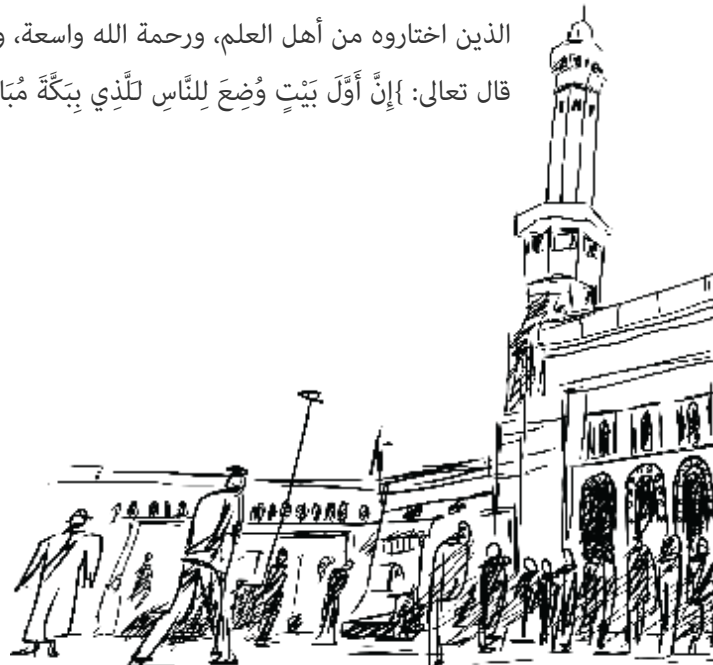 الذين اختاروه من أهل العلم، ورحمة الله واسعة، و
قال تعالى: }إِنَّ أَوَّلَ بَيْتٍ وُضِعَ لِلنَّاسِ لَلَّذِي بِبَكَّةَ مُبَا